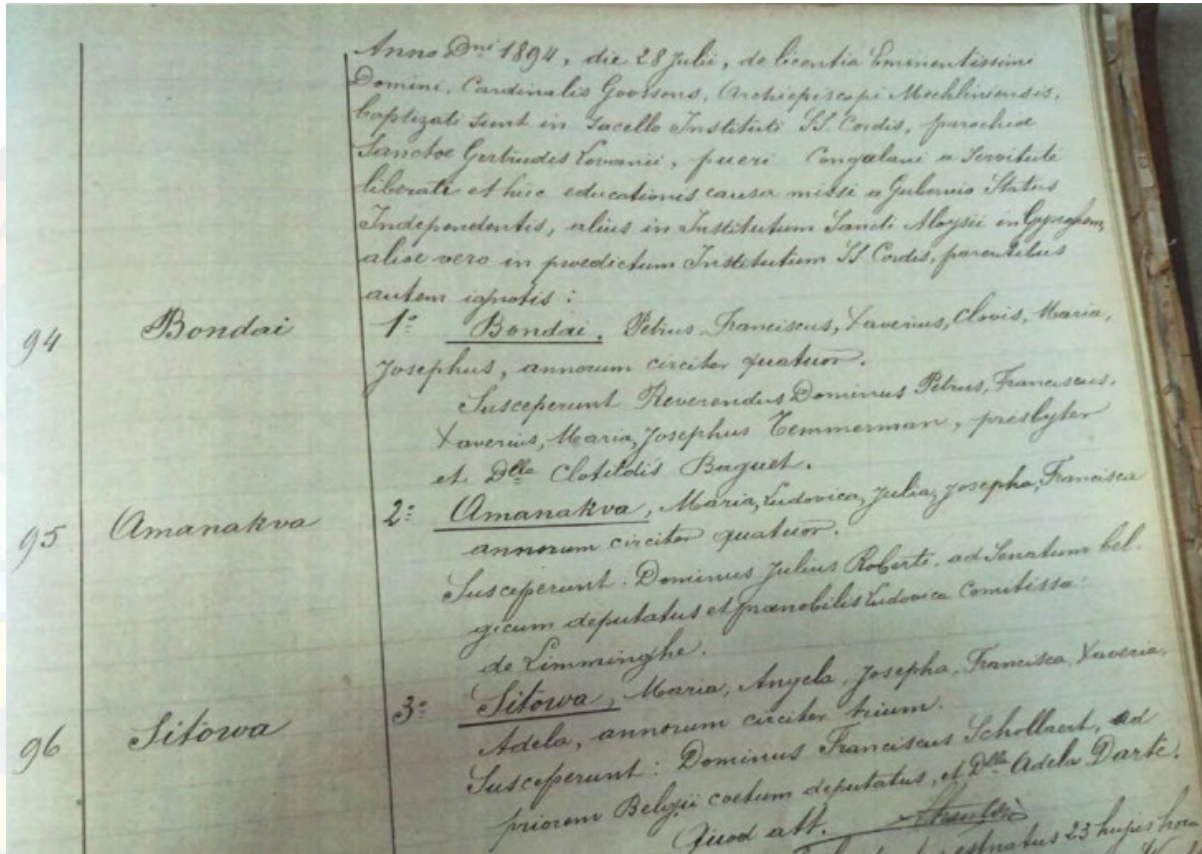 Anno Dni 1894, die 28 Julii, de licentia Eminentissimi
Domini, Cardinalis Goossens, Archiepiscopi Mechliniensis,
baptizati sunt in sacello Instituti SS. Cordis, parochiae
Sanctae Gertrudis Lovanii, pueri Congolani a Servitute
liberati et huc educationis causa missi a Gubernio Status
Independentis, alius in Institutum Sancti Aloysii in
aliae vero in praedictum Institutum SS Cordis, parentibus
autem ignotis :
94 Bondai 1º Bondai, Petrus Franciscus, Xaverius, Clovis, Maria,
Josephus, annorum circiter quatuor.
Susceperunt Reverendus Dominus Petrus, Franciscus,
Xaverius, Maria, Josephus Temmerman, presbyter
et Dlle Clotildis Baguet.
95 Amanakva 2º Amanakva, Maria, Ludovica, Julia, Josepha, Francisca
annorum circiter quatuor.
Susceperunt. Dominus Julius Roberti, ad Senatum bel-
gicum deputatus et praenobilis Ludovica Comitissa
de Limminghe.
96 Sitowa 3º Sitowa, Maria, Angela, Josepha, Francisca, Xaveria,
Adela, annorum circiter trium.
Susceperunt : Dominus Franciscus Schollaert, ad
priorem Belgii coetum deputatus, et Dlla Adela Darte.
Quod att.
natus 23 hujus hora